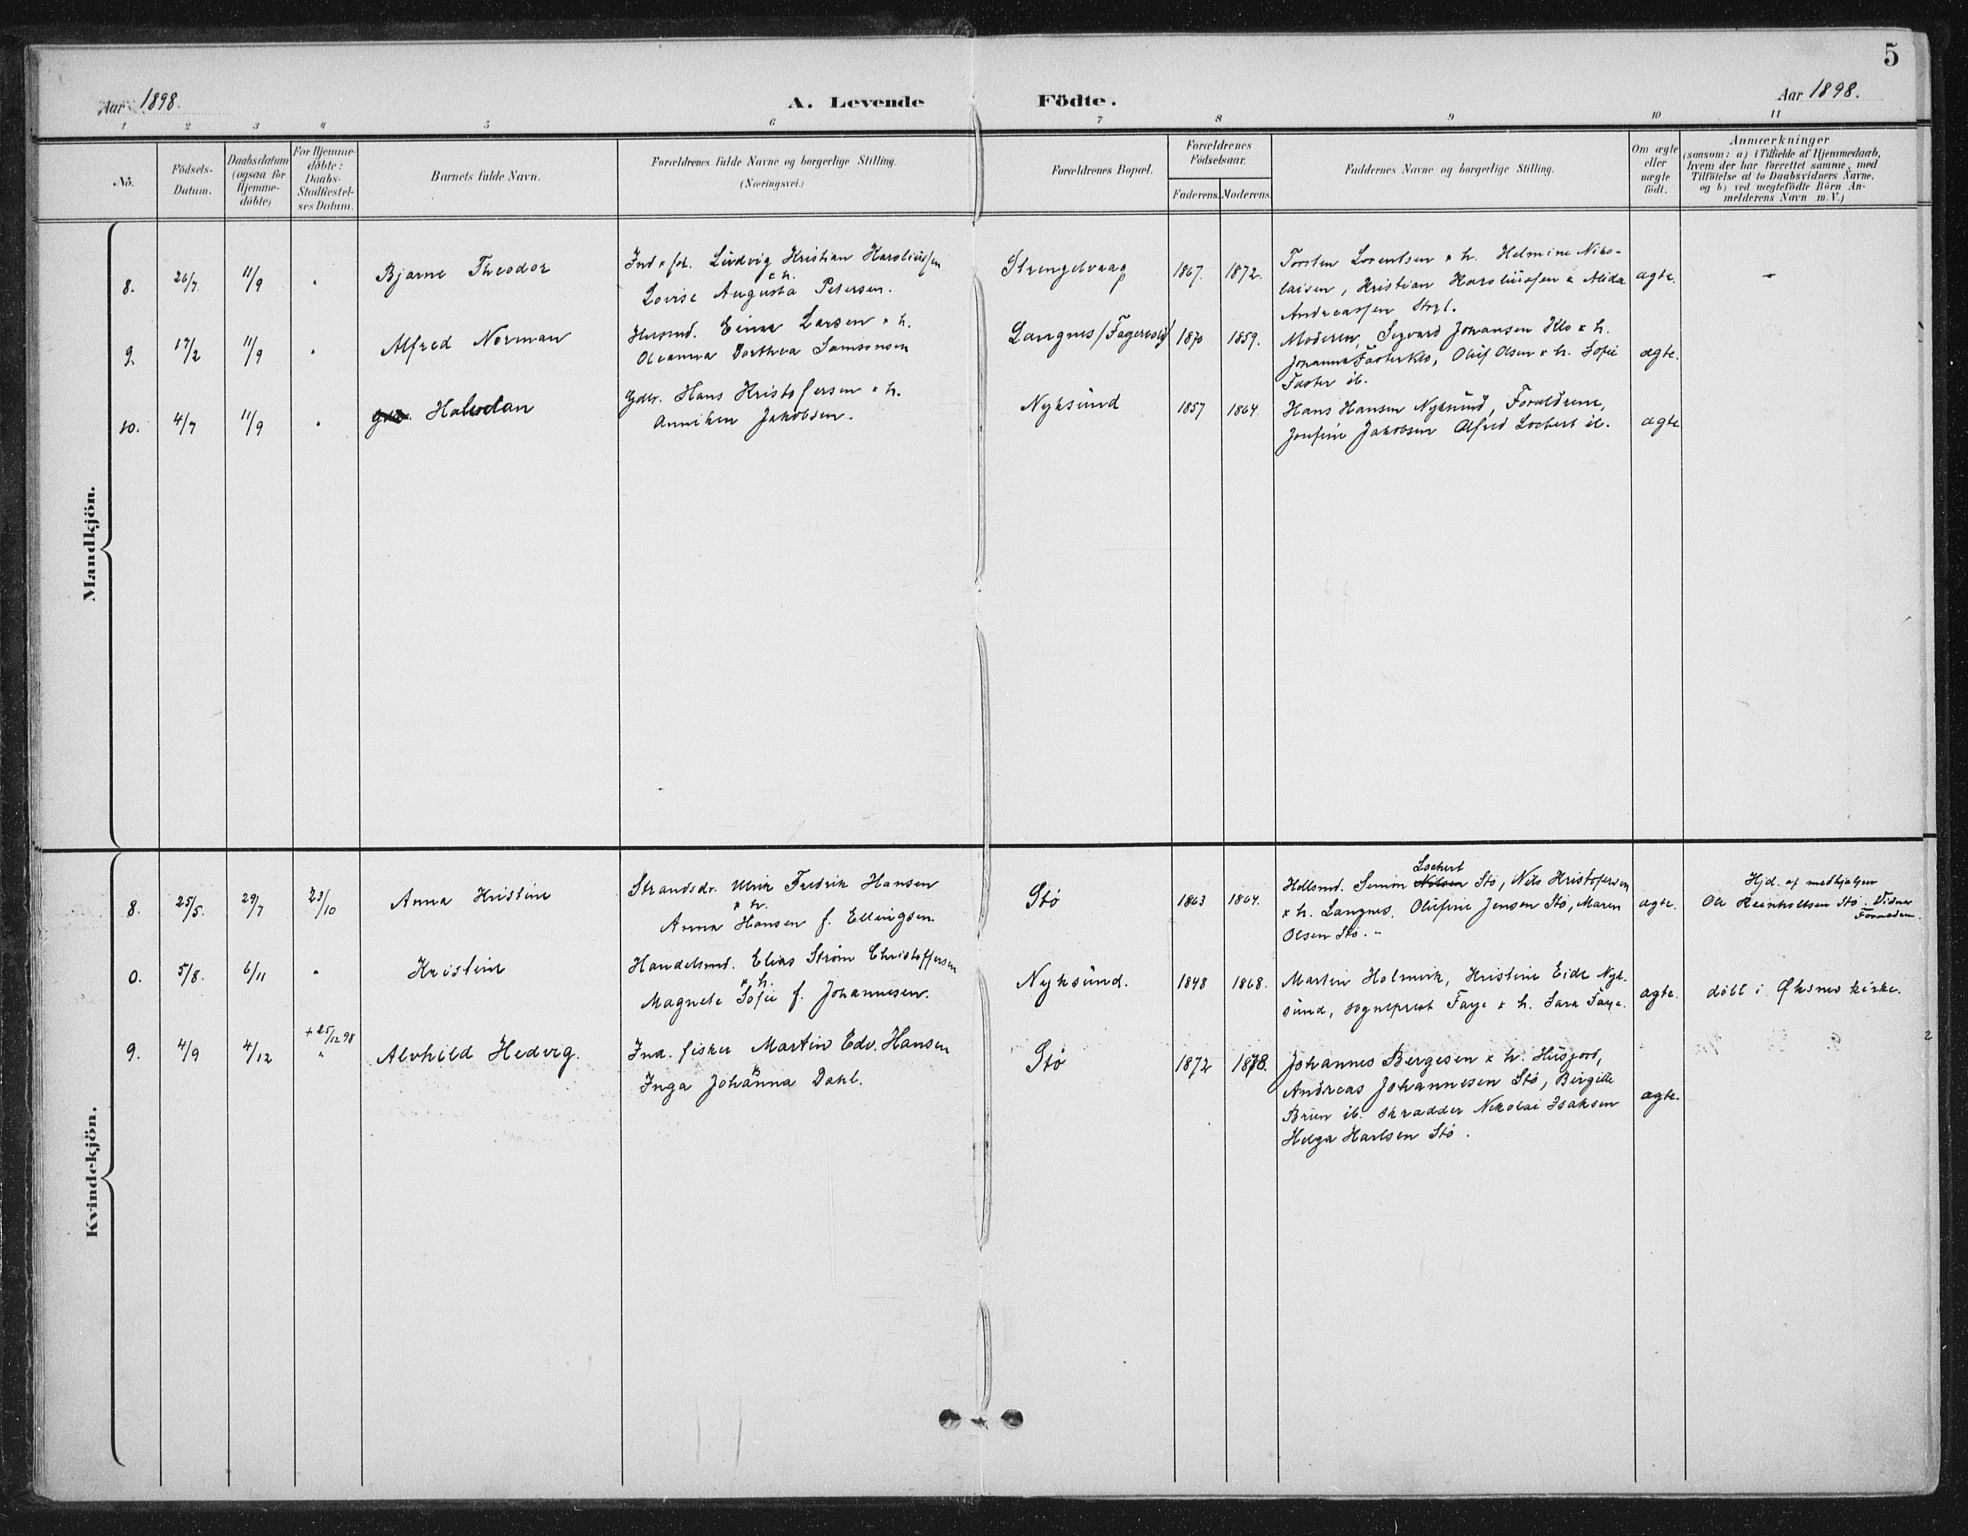 5
Aar 1898.
A. Levende Födte.
Aar 1898.
1 2 3 4 5 6 7 8 9 10 11
No.
Födsels-
Datum.
Daabsdatum
(ogsaa for
Hjemme-
döbte)
For Hjemme-
döbte:
Daabs-
Stadfæstel-
ses Datum.
Barnets fulde Navn.
Forældrenes fulde Navne og borgerlige Stilling.
(Næringsvei.)
Forældrenes Bopæl.
Forældrenes
Födselsaar.
Faderens. Moderens.
Faddernes Navne og borgerlige Stilling.
Om ægte
eller
uægte
födt.
Anmærkninger
(saasom: a) i Tilfælde af Hjemmedaab,
hvem der har forrettet samme, med
Tilföielse af to Daabsvidners Navne,
og b) ved uægtefödte Börn An-
melderens Navn m. V.)
Mandkjön.
8. 26/7 11/9 " Bjarne Theodor
Ind & fsk. Ludvig Kristian Karoliussen
& h.
Lovise Augusta Petersen.
Strengelvaag 1867. 1872.
Torsten Lorentsen & h. Helmine Niko-
laisen, Kristian Karoliussen & Alida
Andreassen Strgl.
ægte. "
9. 17/2 11/9 " Alfred Norman
Husmd. Einar Larsen & h.
Oleanna Dorthea Samsonsen
Langnes/Fagervold/ 1870 1859.
Moderen, Sigvard Johansen Klo & h.
Johanna Faster Klo, Oluf Olsen & h. Sofie
Faster ib.
ægte.
10. 4/7 11/9 " Halvdan
Gdbr. Hans Kristofersen & h.
Anniken Jakobsen.
Nyksund 1857 1864.
Hans Hansen Nyksund, Forældrene,
Josefine Jakobsen Alfred Lochert ib.
ægte
Kvindekjön.
8. 25/5. 29/7 23/10 Anna Kristine
Strandsdr. Ulrik Fredrik Hansen
& h.
Anna Hansen f. Ellingsen.
Stø 1863 1864.
Lochert
Hdlsmd. Simon Nilsen Stø, Nils Kristofersen
& h. Langnes. Olufine Jensen Stø, Maren
Olsen Stø. "
ægte.
Hjd. af medhjælper
Ole Reinholtsen Stø. Vidner
Foræld.
0. 5/8. 6/11 " Kristine
Handelsmd. Elias Strøm Christoffersen
& h.
Magnete Sofie f. Johannesen.
Nyksund. 1848 1868.
Martin Holmvik, Kristine Eide Nyk-
sund, sogneprest Faye & h. Sara Faye.
ægte.
döbt i Øksnes kirke.
9. 4/9 4/12 + 25/12 98 " Alvhild Hedvig.
Ind. fisker Martin Edv. Hansen
&
Inga Johanna Dahl.
Stø 1872 1878.
Johannes Bergesen & h. Husjord,
Andreas Johannesen Stø, Birgitte
Brun ib. skrædder Nikolai Isaksen
Helga Karlsen Stø.
ægte.
2